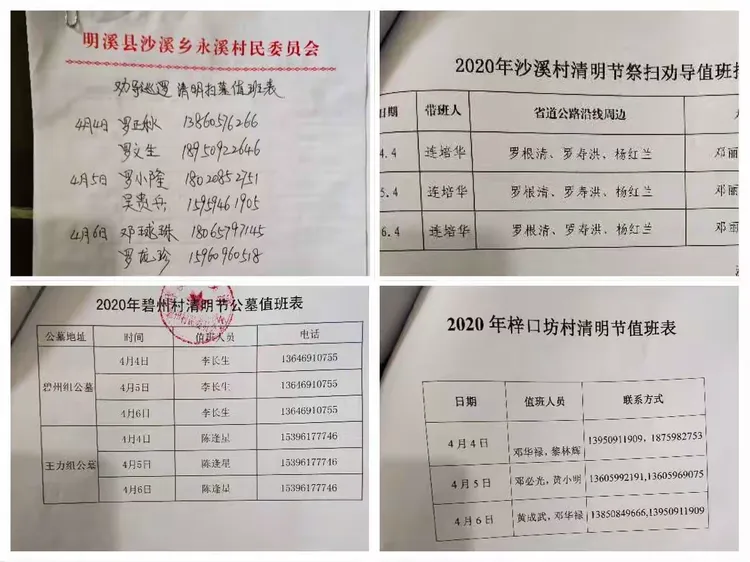 明溪县沙溪乡永溪村民委员会
劝导巡逻 清明扫墓值班表
4月4日 罗正秋 13860576266
罗文生 18950922646
4月5日 罗小隆 18020852751
吴贵兵 15959461905
4月6日 邓球珠 18065797145
罗龙珍 15960960518
2020年沙溪村清明节祭扫劝导值班
日期 带班人 省道公路沿线周边
4.4 连培华 罗根清、罗寿洪、杨红兰 邓丽
5.4 连培华 罗根清、罗寿洪、杨红兰 邓丽
6.4 连培华 罗根清、罗寿洪、杨红兰 邓丽
2020年碧州村清明节公墓值班表
公墓地址 时间 值班人员 电话
碧州组公墓 4月4日 李长生 13646910755
4月5日 李长生 13646910755
4月6日 李长生 13646910755
王力组公墓 4月4日 陈逢星 15396177746
4月5日 陈逢星 15396177746
4月6日 陈逢星 15396177746
2020年梓口坊村清明节值班表
日期 值班人员 联系方式
4月4日 邓华禄,黎林辉 13950911909，1875982753
4月5日 邓必光,黄小明 13605992191,13605969075
4月6日 黄成武,邓华禄 13850849666,13950911909